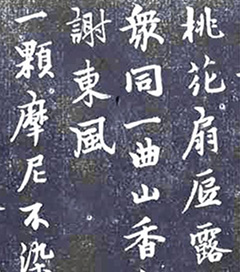 桃花扇底露
衆同一曲山香
謝東風
一顆摩尼不染